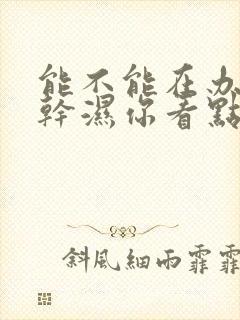 能不能在办
幹濕你看點
斜風細雨霏霏